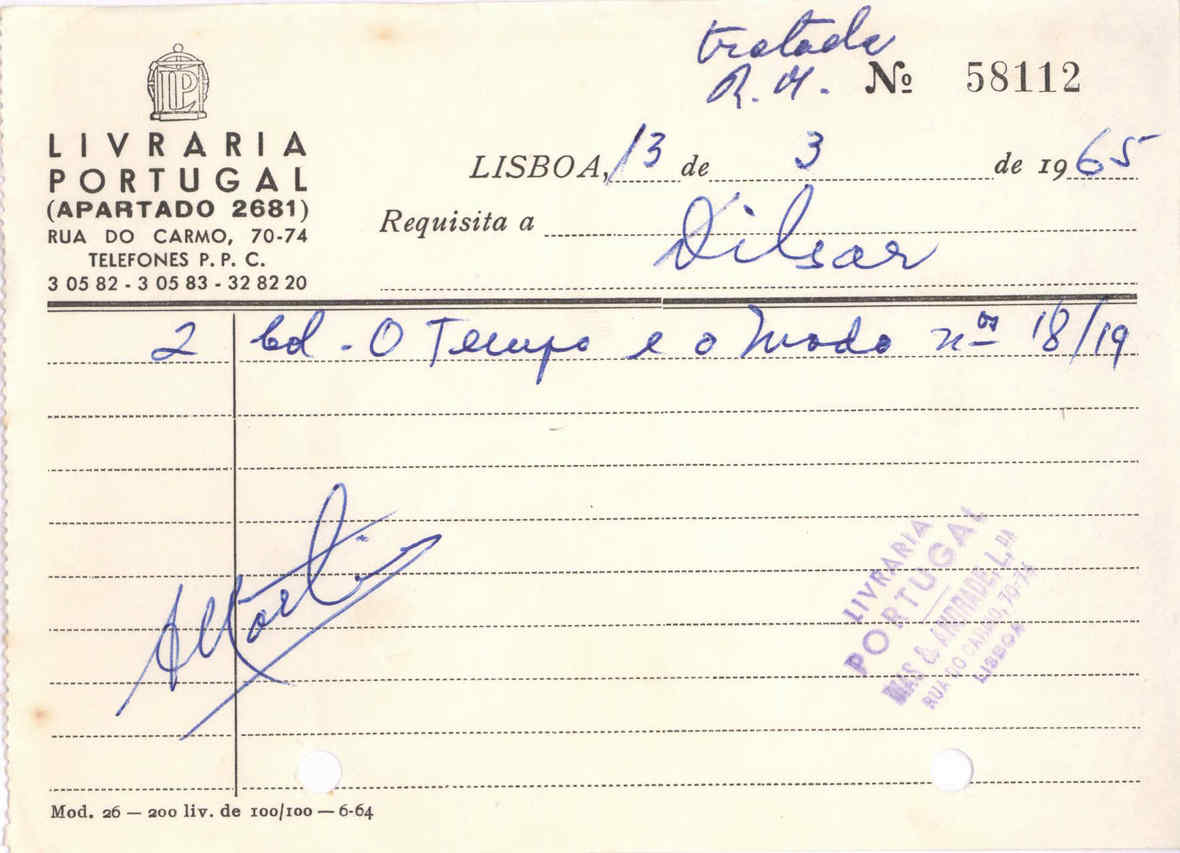 tratada
R. M. Nº 58112
LP
LIVRARIA
PORTUGAL
(APARTADO 2681)
RUA DO CARMO, 70-74
TELEFONES P. P. C.
3 05 82 - 3 05 83 - 32 82 20
LISBOA, 13 de 3 de 1965
Requisita a Dilsar
2 Ed. O Tempo e o Modo nos 18/19
LIVRARIA
PORTUGAL
DIAS & ANDRADE, L.DA
RUA DO CARMO, 70-74
LISBOA
Mod. 26 — 200 liv. de 100/100 — 6-64